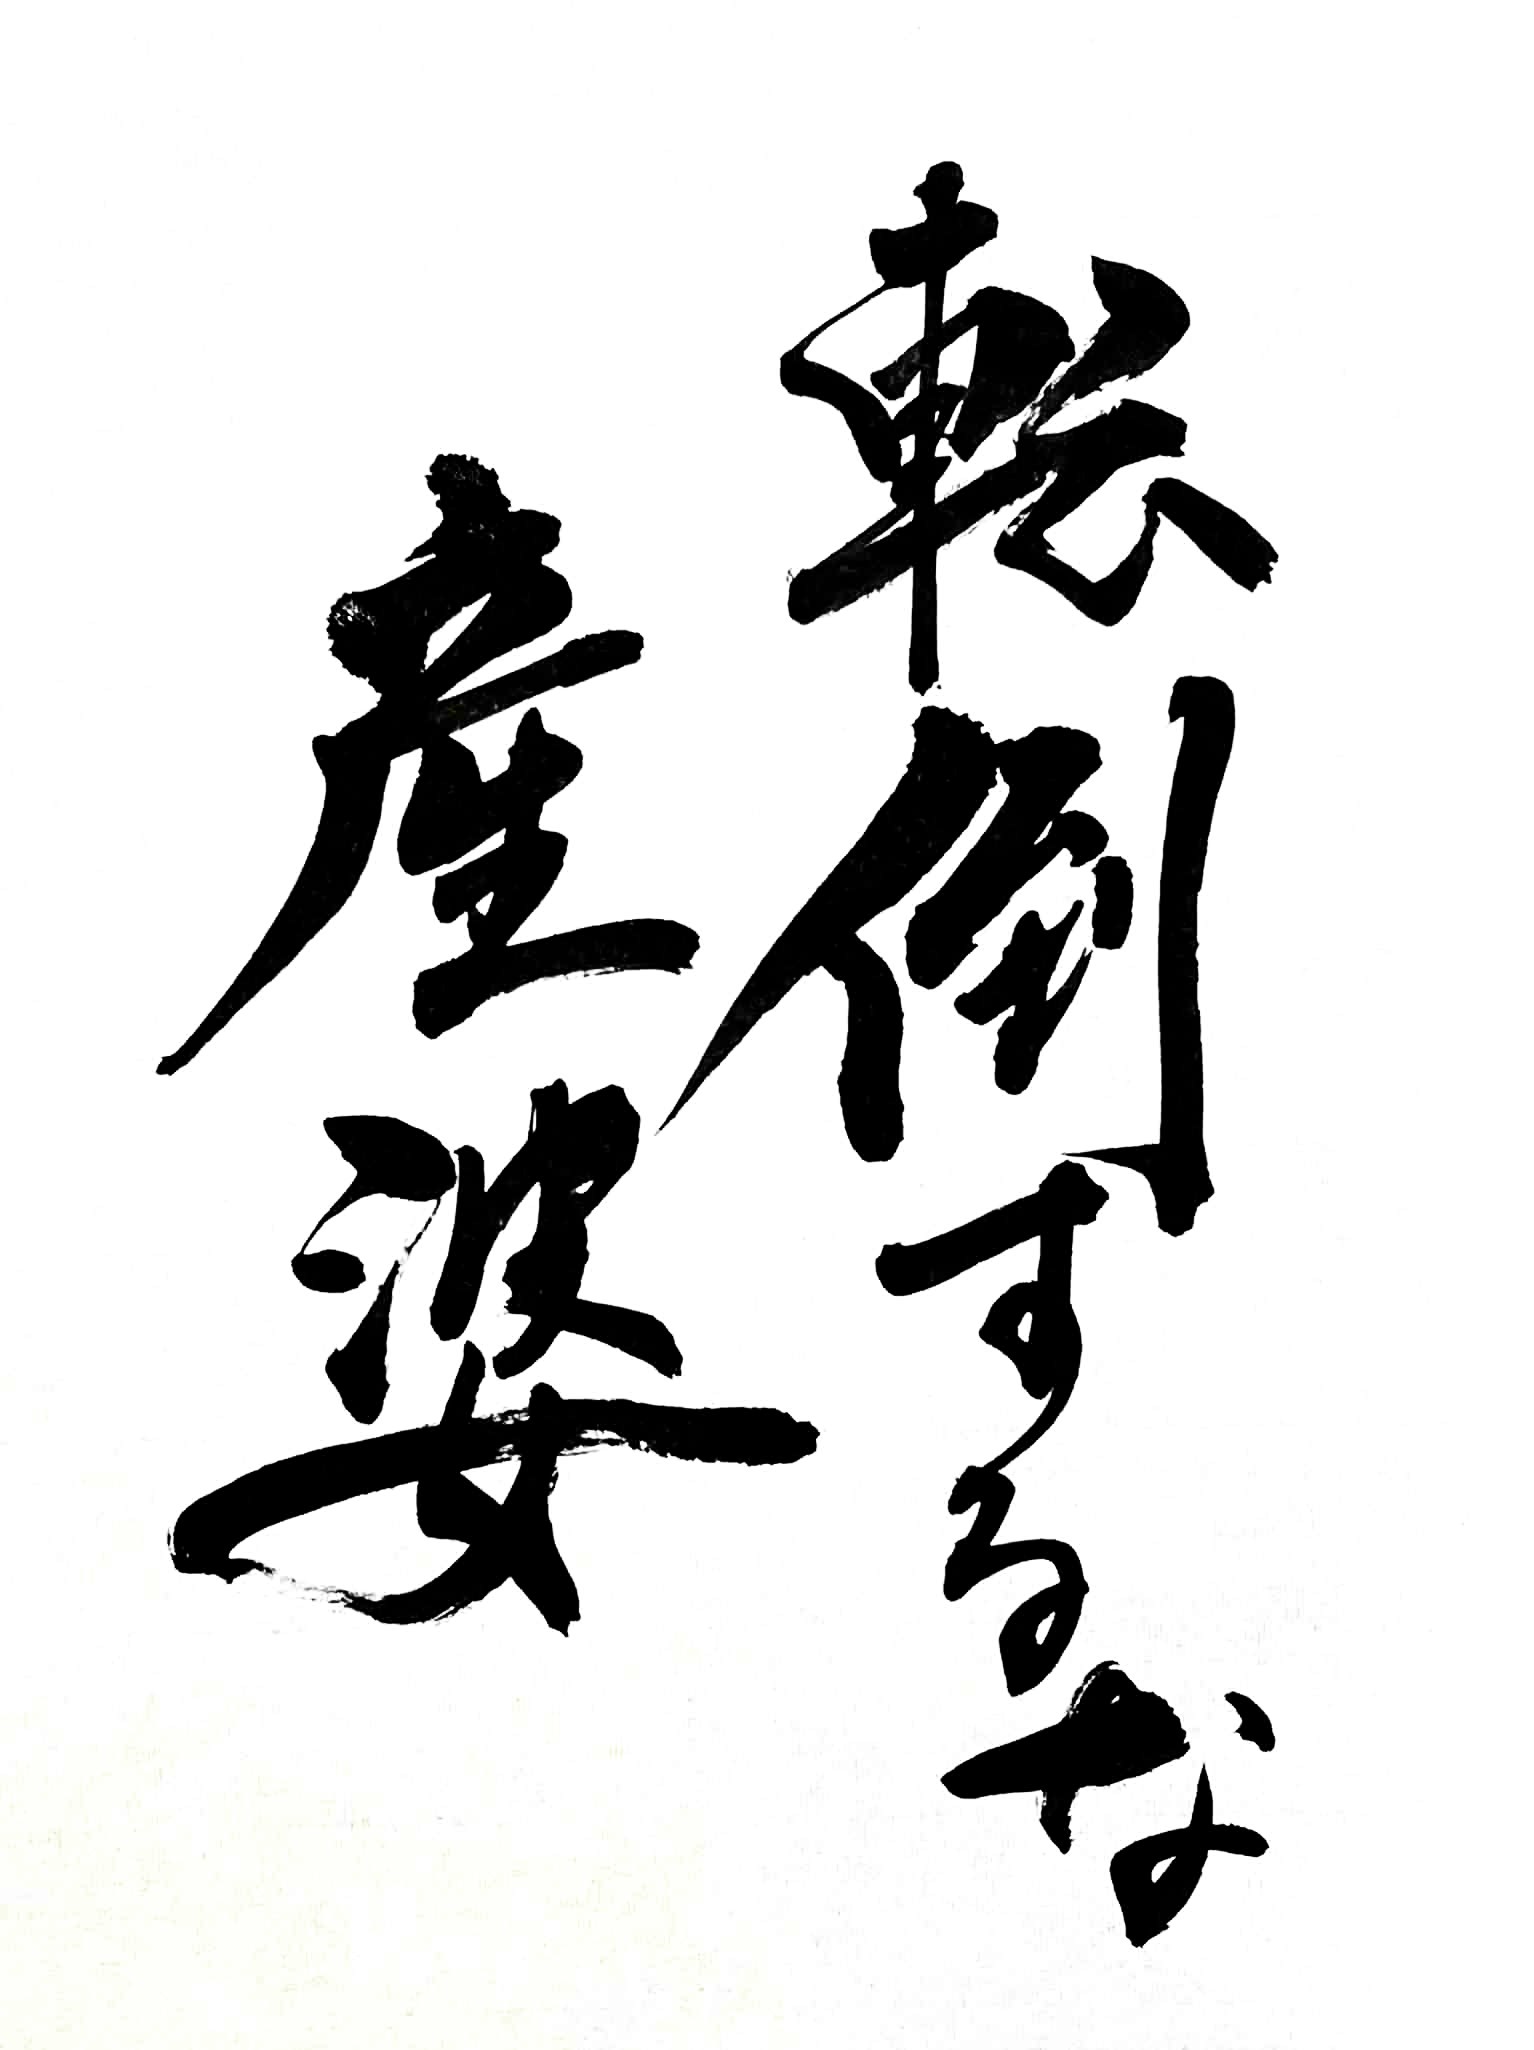 転倒するな
産婆